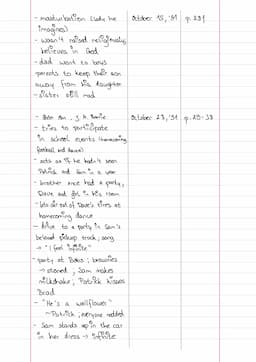 - masturbation (lady he
imagines)
October 15, '91
p. 23f
- wasn't raised religiously,
believes in God
- dad went to boys
parents to keep their son
away from his daughter
- sister still mad
October 28, '91
p. 25-33
- tries to participate
in school events (homecoming
football and dance)
- acts as if he hadn't seen
Patrick and Sam in a year
- brother once had a party,
Dave and girl in his room
- lets air out of Dave's tires at
homecoming dance
- drive to a party in Sam's
beloved pickup truck, song
→ "I feel infinite"
- party at Bob's; brownies
→ stoned; Sam makes
milkshake; Patrick kisses
Brad
- "He's a wallflower"
~ Patrick; everyone nodded
- Sam stands up in the car
in her dress → infinite